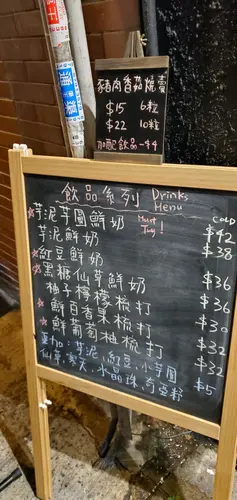 豬肉香茄燒賣
$15 6粒
$22 10粒
加配飲品 -$4
飲品系列 Drinks Menu
Must Try!
COLD
芋泥芋圓鮮奶 $42
芋泥鮮奶 $38
紅豆鮮奶 $36
黑糖仙草鮮奶 $36
柚子檸檬梳打 $30
鮮百香果梳打 $32
鮮葡萄柚梳打 $32
芋泥,紅豆,小芋圓
仙草,寒天,水晶珠,奇亞籽 $5